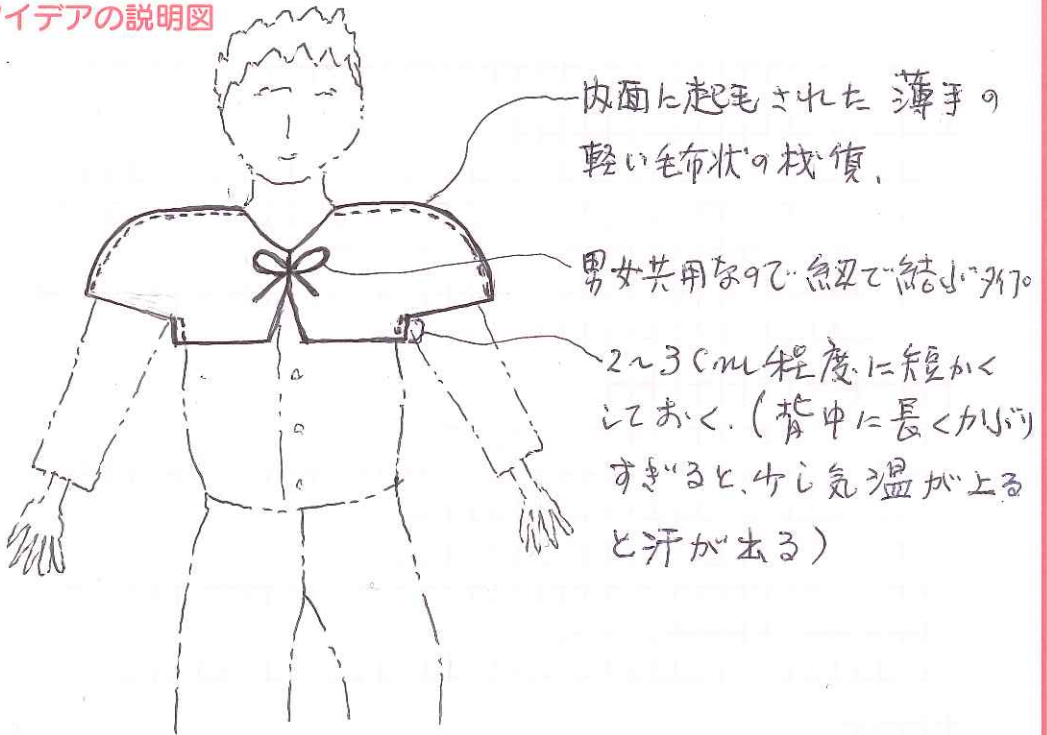 イデアの説明図
内面に起毛された 薄手の
軽い毛布状の材質、
男女共用なので紐で結ぶタイプ
2〜3cm程度に短かく
しておく.(背中に長くかぶり
すぎると、少し気温が上る
と汗が出る)